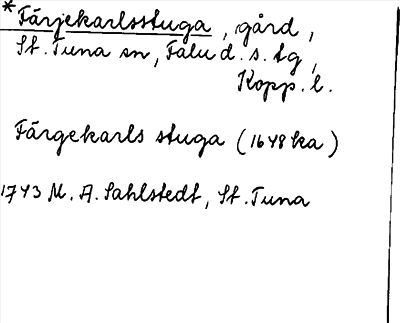 *Färjekarlsstuga, gård,
St. Tuna sn, Falu d. s. tg,
Kopp. l.
Färgekarls stuga (1648 ka)
1743 M. A. Sahlstedt, St. Tuna